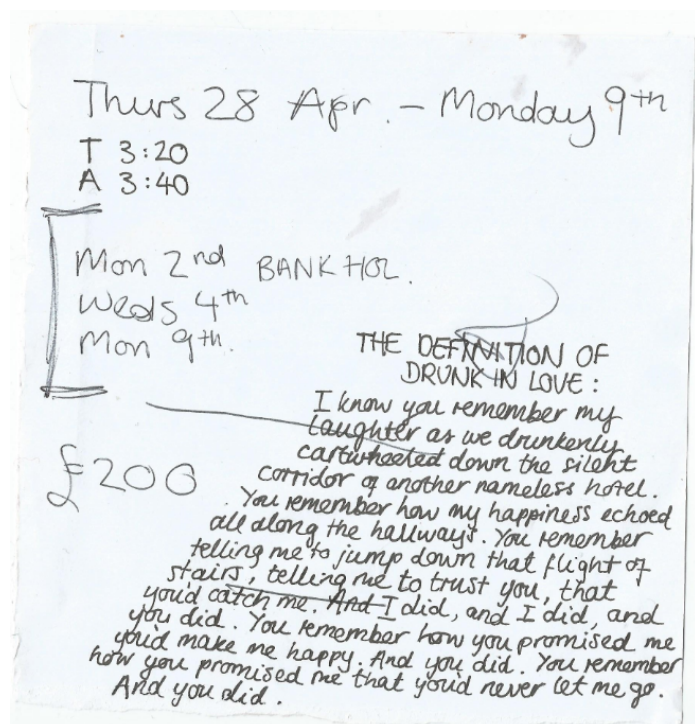 Thurs 28 Apr. - Monday 9th
T 3:20
A 3:40
Mon 2nd BANK HOL.
Weds 4th
Mon 9th.
£200
THE DEFINITION OF
DRUNK IN LOVE:
I know you remember my
laughter as we drunkenly
cartwheeled down the silent
corridor of another nameless hotel.
You remember how my happiness echoed
all along the hallways. You remember
telling me to jump down that flight of
stairs, telling me to trust you, that
you'd catch me. And I did, and I did, and
you did. You remember how you promised me
you'd make me happy. And you did. You remember
how you promised me that you'd never let me go.
And you did.